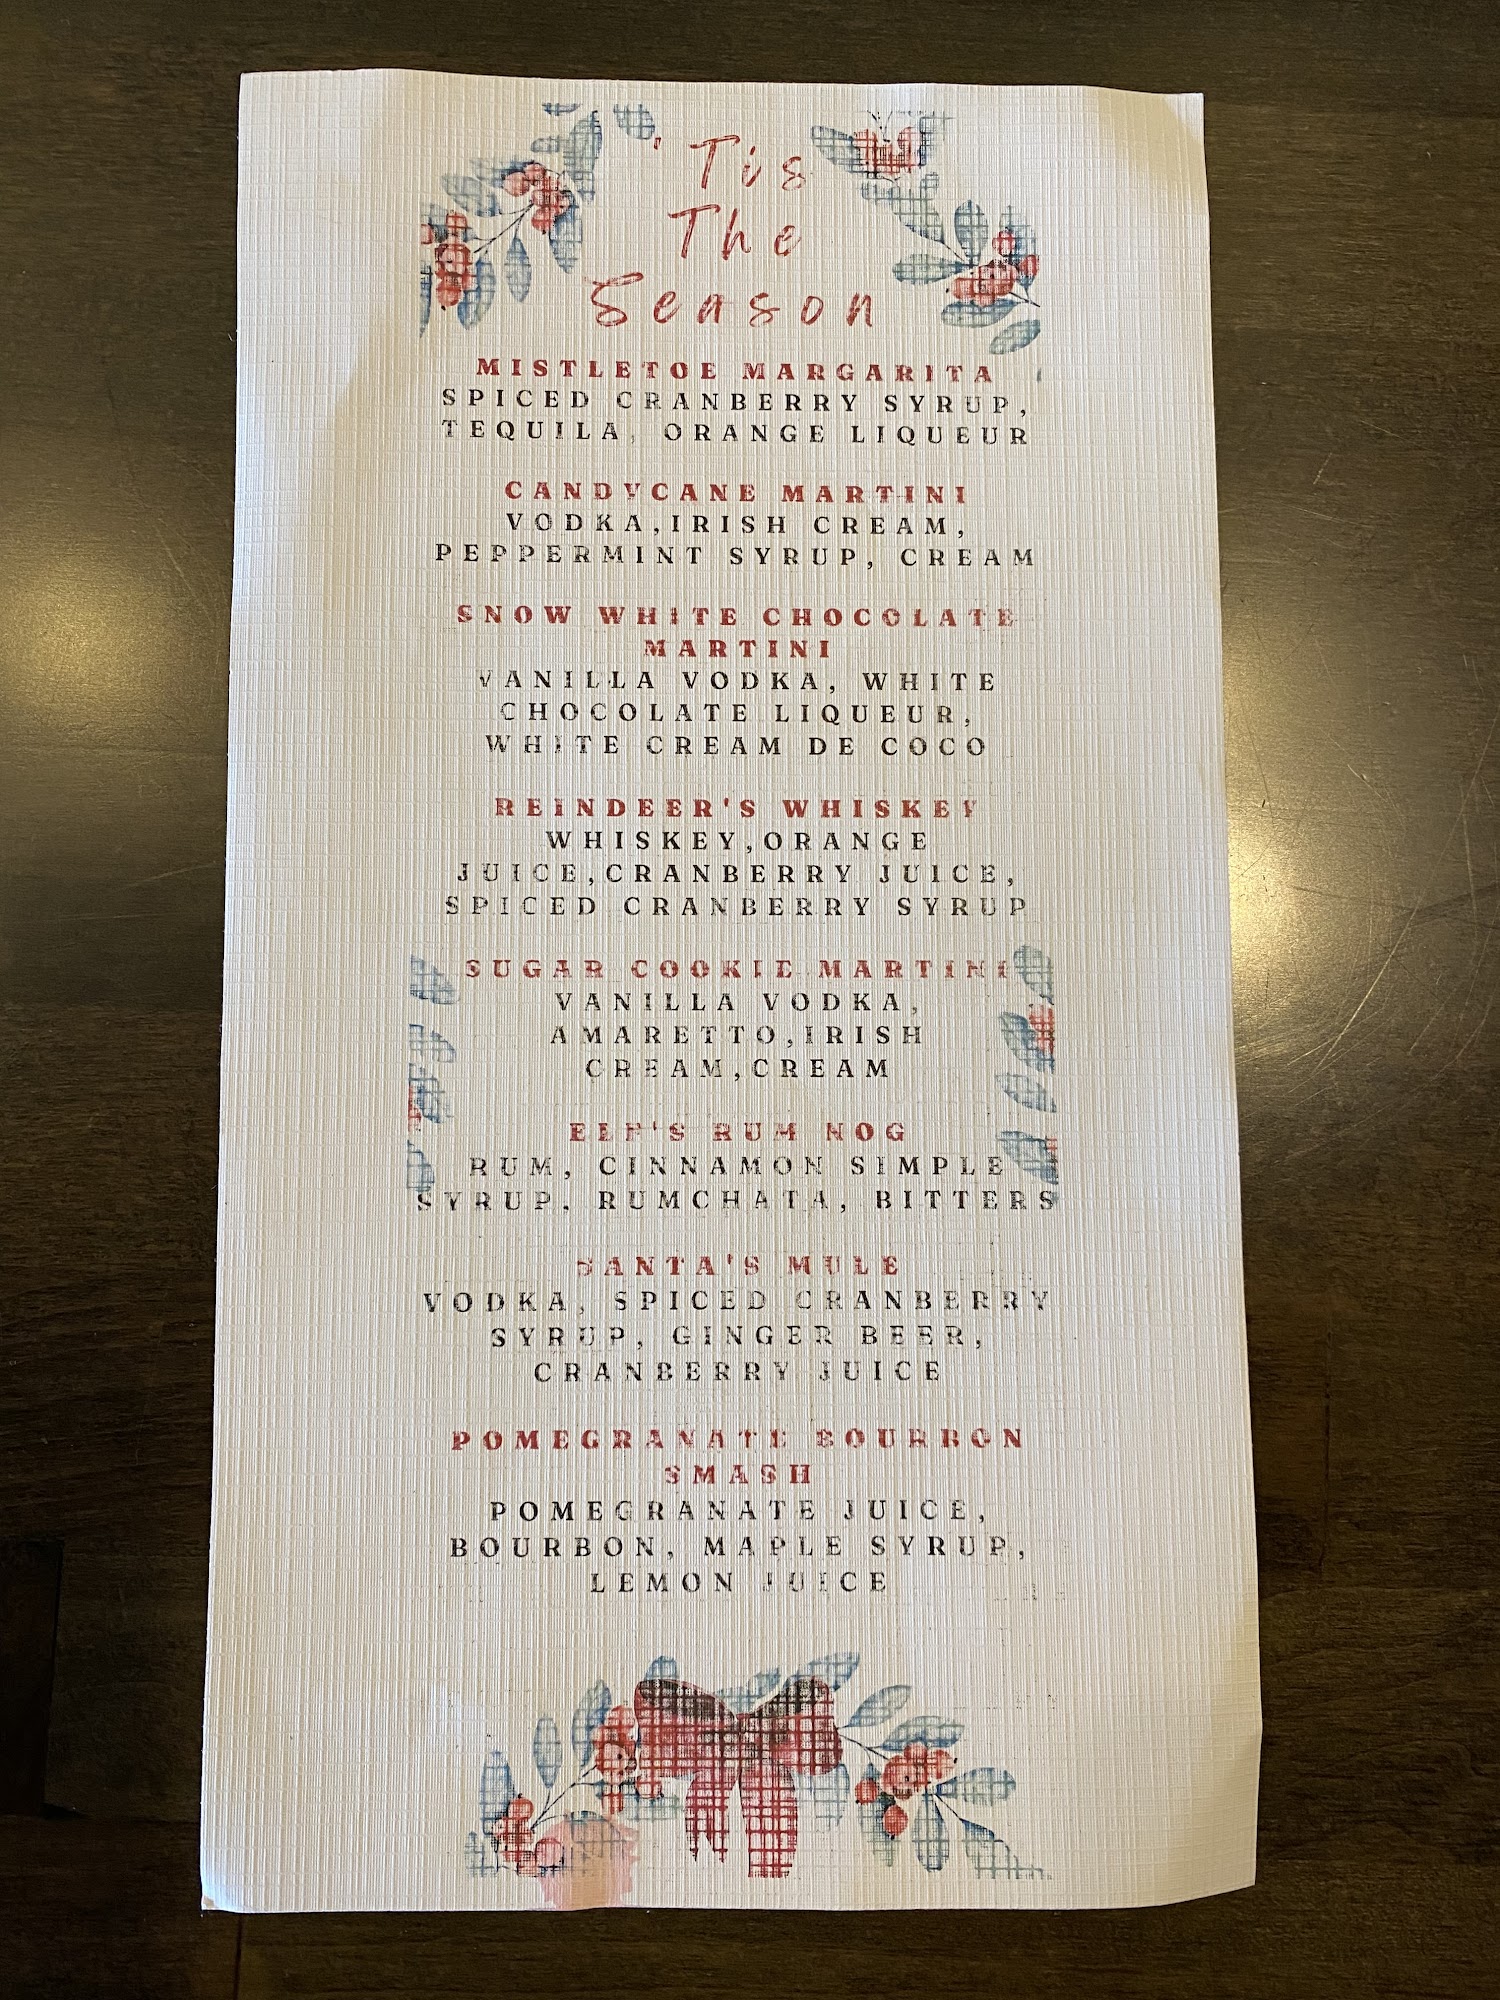 'Tis
The
Season
MISTLETOE MARGARITA
SPICED CRANBERRY SYRUP,
TEQUILA, ORANGE LIQUEUR
CANDYCANE MARTINI
VODKA,IRISH CREAM,
PEPPERMINT SYRUP, CREAM
SNOW WHITE CHOCOLATE
MARTINI
VANILLA VODKA, WHITE
CHOCOLATE LIQUEUR,
WHITE CREAM DE COCO
REINDEER'S WHISKEY
WHISKEY,ORANGE
JUICE,CRANBERRY JUICE,
SPICED CRANBERRY SYRUP
SUGAR COOKIE MARTINI
VANILLA VODKA,
AMARETTO,IRISH
CREAM,CREAM
ELF'S RUM NOG
RUM, CINNAMON SIMPLE
SYRUP, RUMCHATA, BITTERS
SANTA'S MULE
VODKA, SPICED CRANBERRY
SYRUP, GINGER BEER,
CRANBERRY JUICE
POMEGRANATE BOURBON
SMASH
POMEGRANATE JUICE,
BOURBON, MAPLE SYRUP,
LEMON JUICE